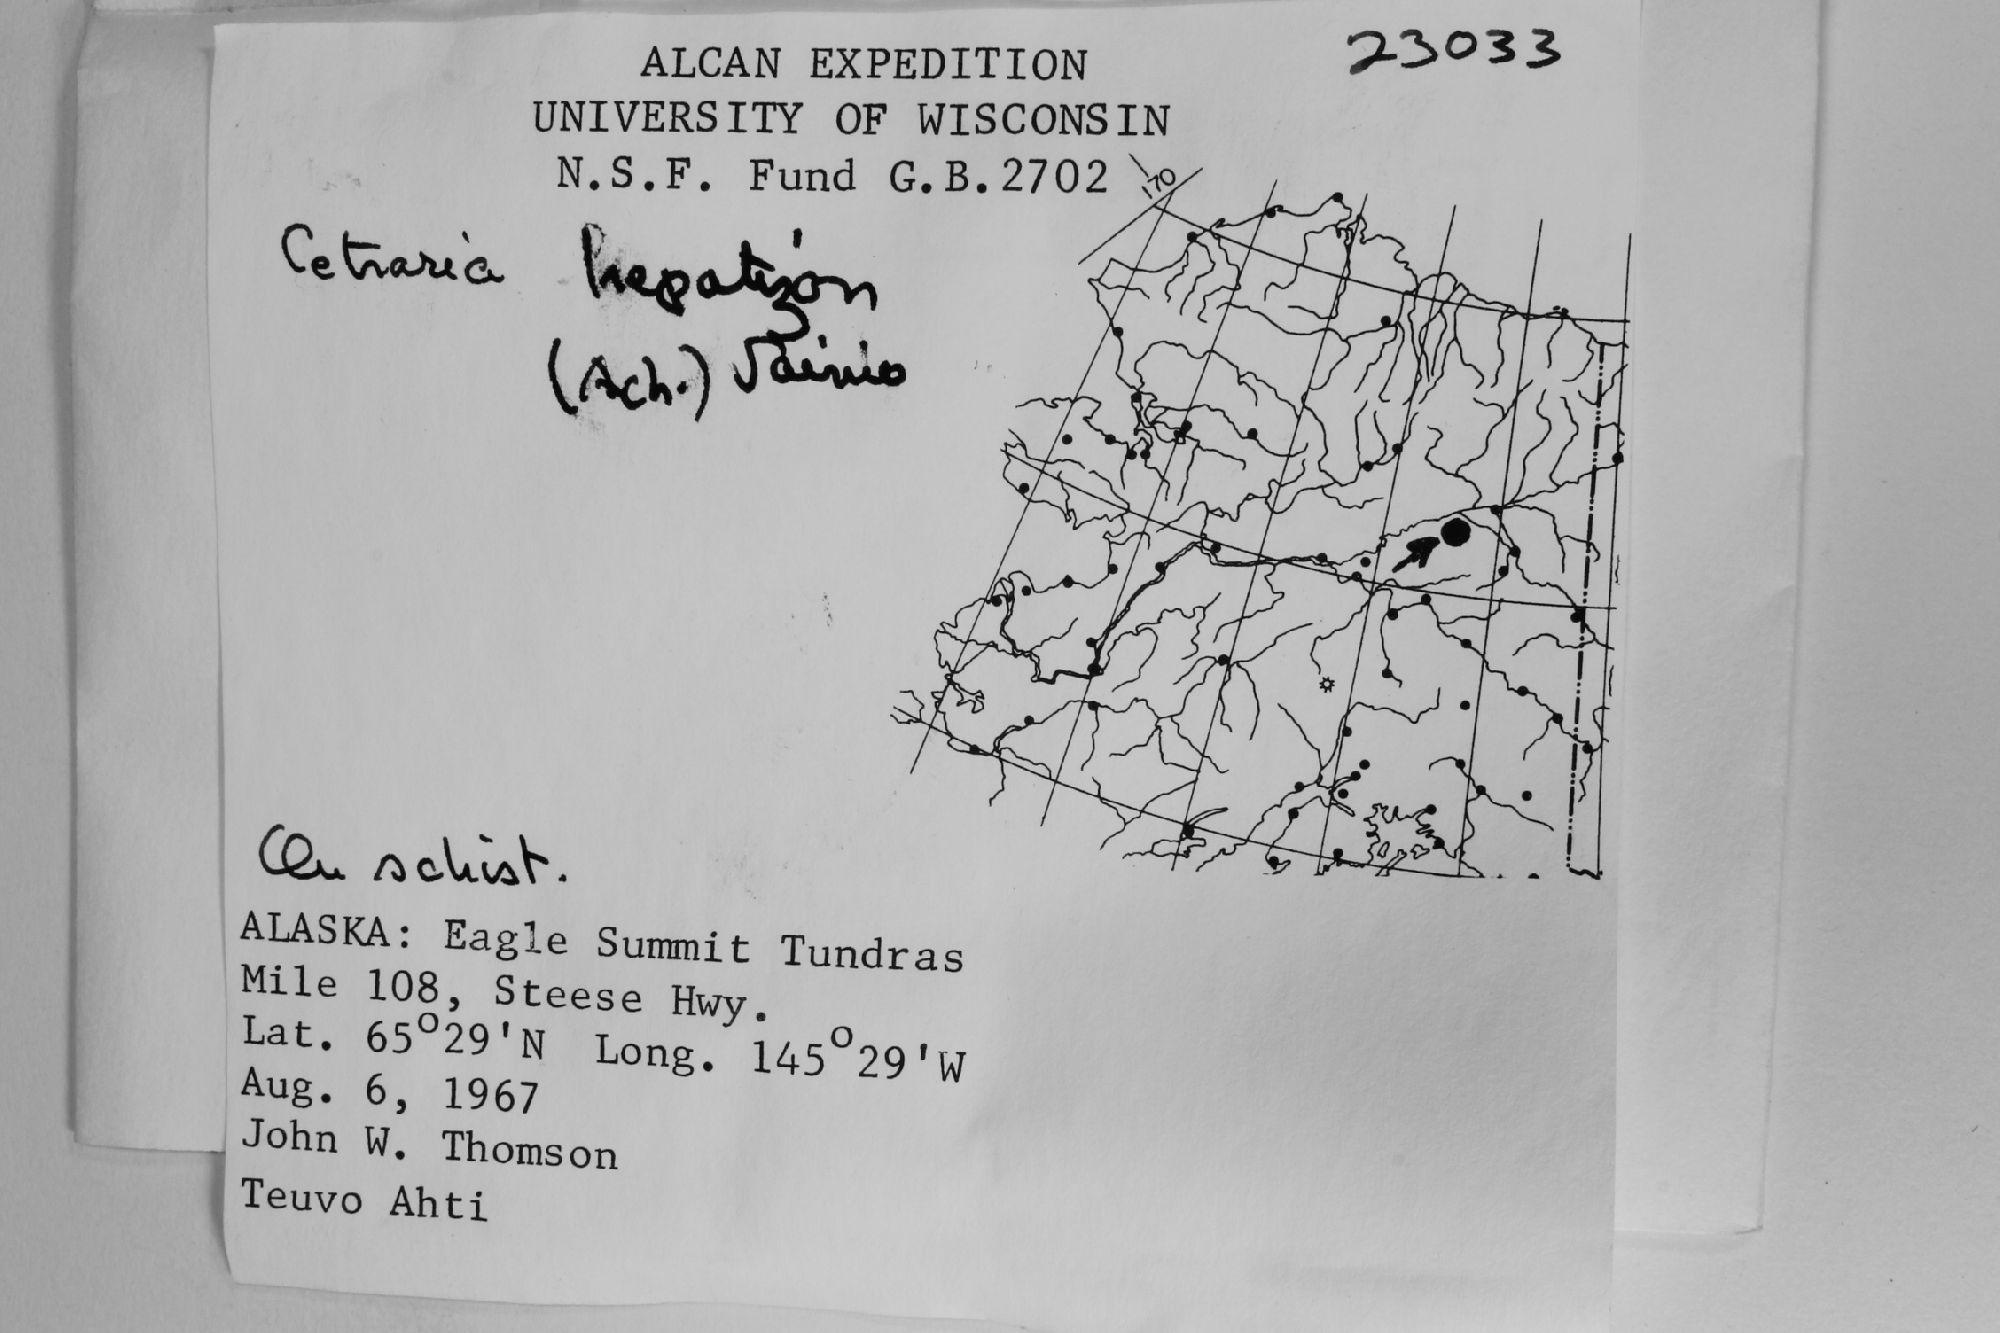 ALCAN EXPEDITION
23033
UNIVERSITY OF WISCONSIN
N.S.F. Fund G.B.2702
170
Cetraria hepatizon
(Ach.) Vainio
On schist.
ALASKA: Eagle Summit Tundras
Mile 108, Steese Hwy.
Lat. 65°29'N Long. 145°29'W
Aug. 6, 1967
John W. Thomson
Teuvo Ahti